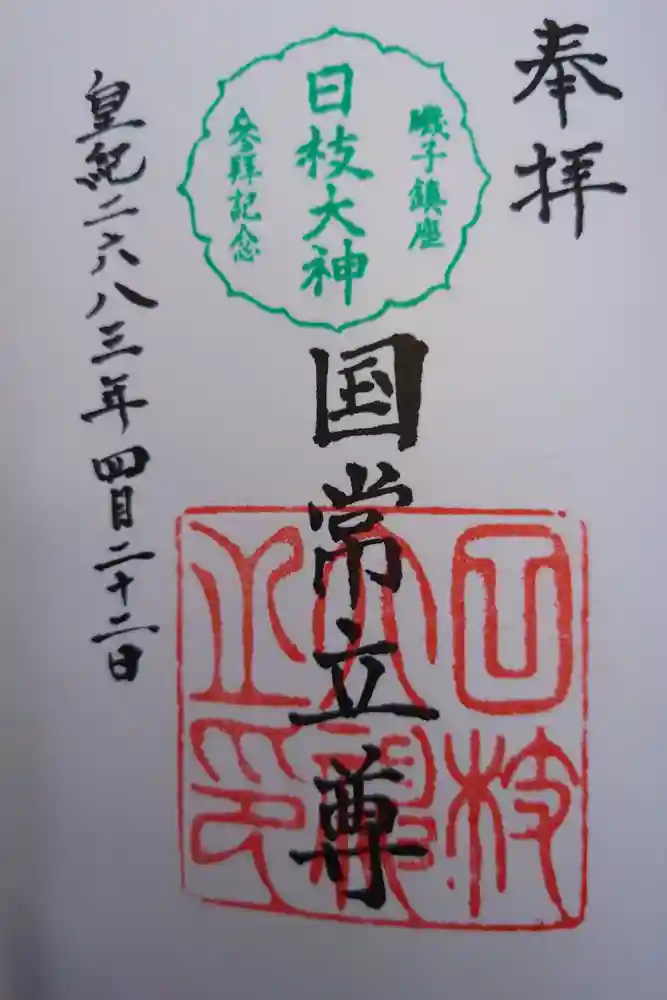 奉拝
磯子鎮座
日枝大神
参拝記念
国常立尊
日枝
大神
之印
皇紀二六八三年四月二十二日